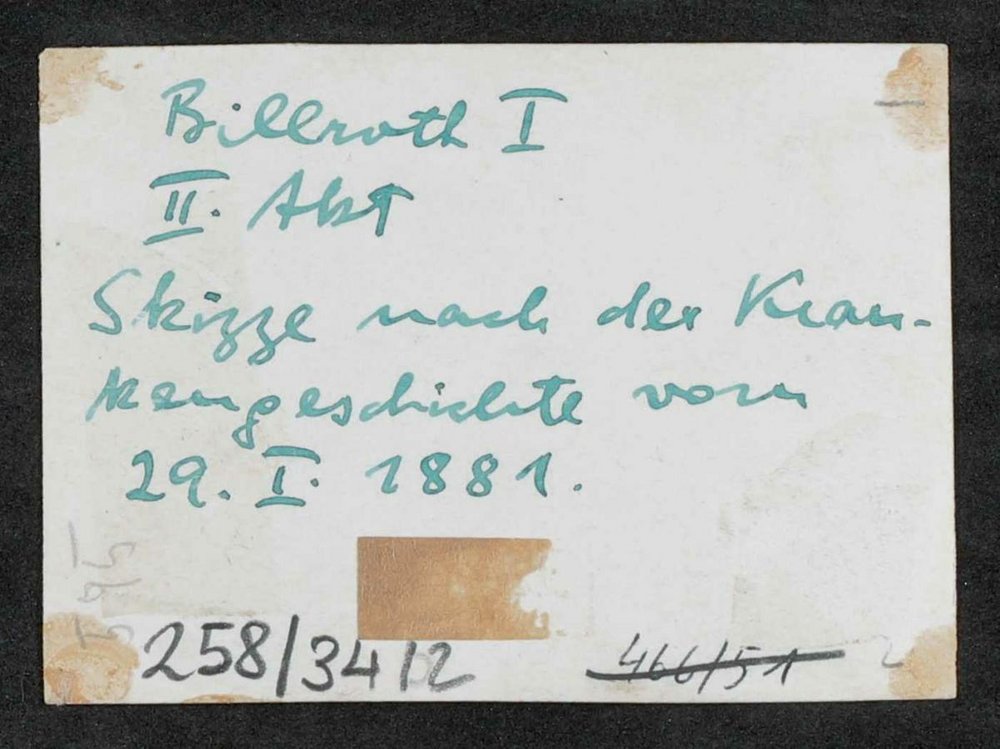 Billroth I
II. Akt
Skizze nach der Kran-
kengeschichte vom
29. I. 1881.
258/34/2
466/51